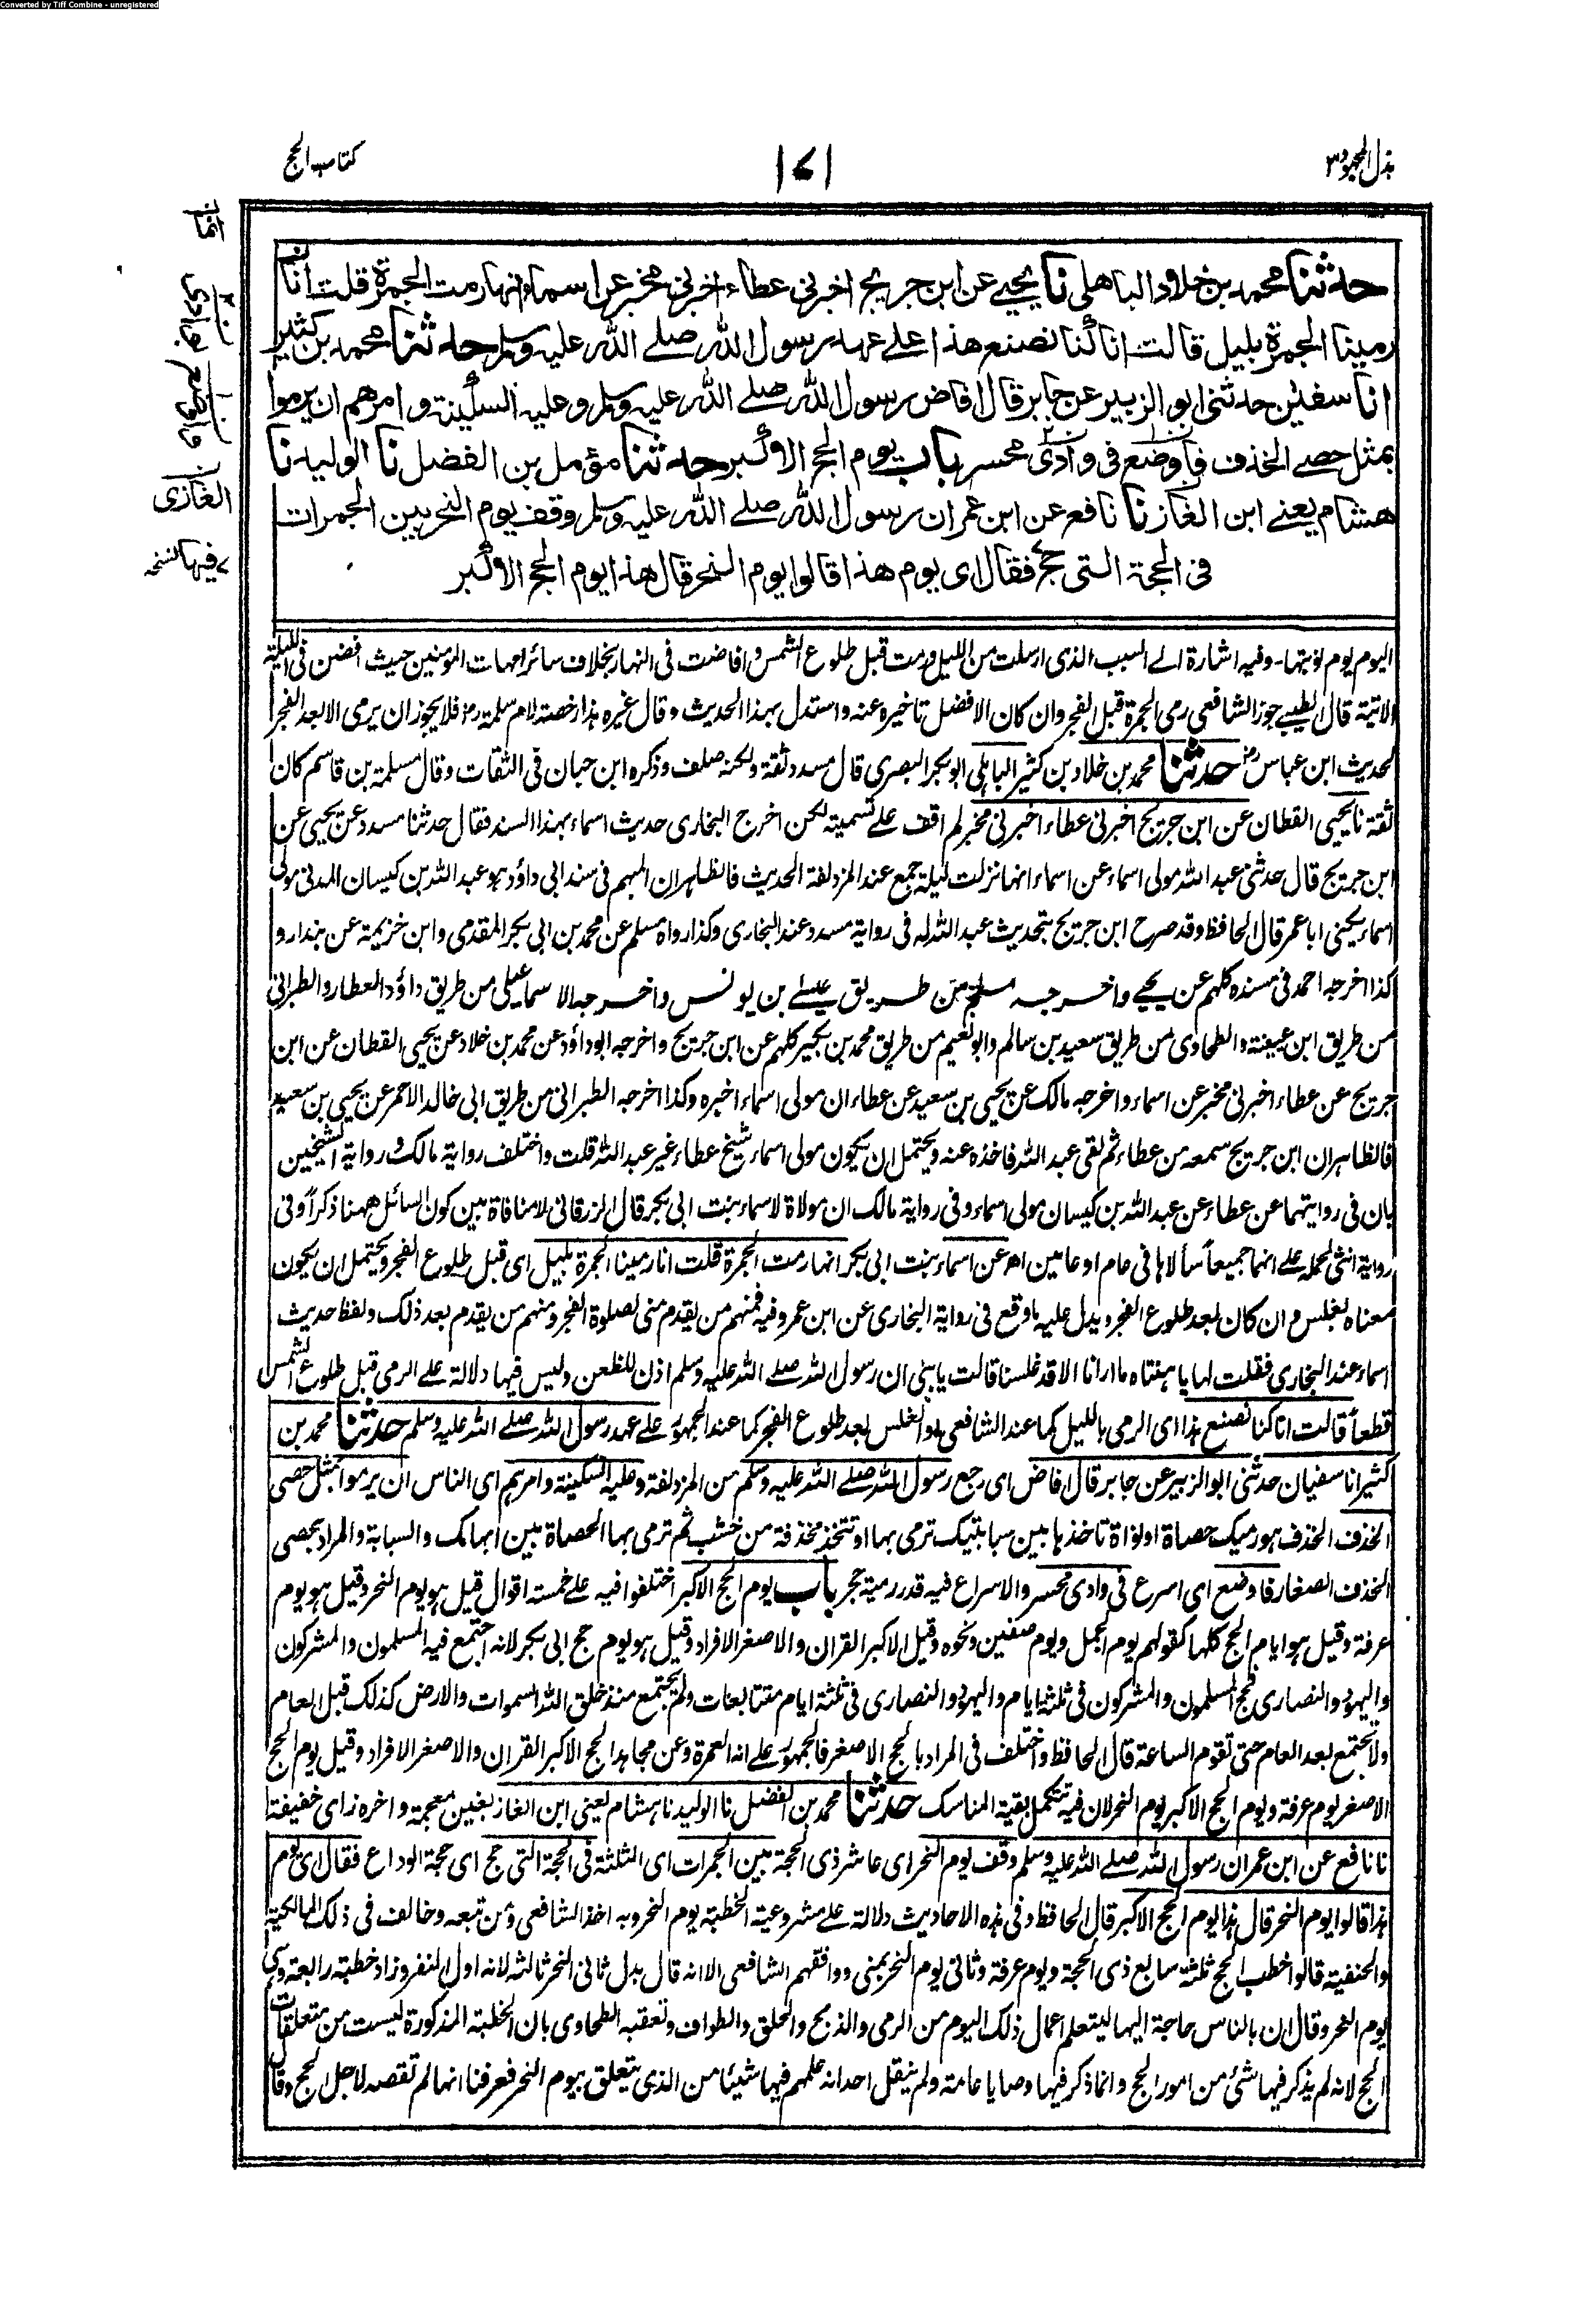 Converted by Tiff Combine - unregistered
بذل المجهود ٣
١٧١
كتاب الحج
حدثنا محمد بن خلاد الباهلي نا يحيى عن ابن جريج اخبرني عطاء اخبرني مخبر عن اسماء انها رمت الجمرة قلت انا
رمينا الجمرة بليل قالت انا كنا نصنع هذا على عهد رسول الله صلى الله عليه وسلم حدثنا محمد بن كثير
انا سفين حدثني ابو الزبير عن جابر قال افاض رسول الله صلى الله عليه وسلم وعليه السكينة وامرهم ان يرموا
بمثل حصى الخذف فاوضع في وادى محسر باب يوم الحج الاكبر حدثنا مؤمل بن الفضل نا الوليد نا
هشام يعنى ابن الغاز نا نافع عن ابن عمر ان رسول الله صلى الله عليه وسلم وقف يوم النحر بين الجمرات
في الحجة التي حج فقال اى يوم هذا قالوا يوم النحر قال هذا يوم الحج الاكبر
انما
الغازى
فيها نسخه
اليوم يوم نوبتها - وفيه اشارة الى السبب الذى ارسلت من الليل ورمت قبل طلوع الشمس وافاضت في النهار بخلاف سائر امهات المؤمنين حيث افضن في الليلة
الاتية قال الطيبى جوز الشافعى رمى الجمرة قبل الفجر وان كان الافضل تاخيره عنه واستدل بهذا الحديث وقال غيره هذا رخصة لام سلمة رض فلا يجوز ان يرمى الا بعد الفجر
لحديث ابن عباس رض حدثنا محمد بن خلاد بن كثير الباهلى ابو بكر البصرى قال مسدد ثقة ولكنه صلف وذكره ابن حبان في الثقات وقال مسلمة بن قاسم كان
ثقة نا يحيى القطان عن ابن جريج اخبرني عطاء اخبرني مخبر لم اقف على تسميته لكن اخرج البخارى حديث اسماء بهذا السند فقال حدثنا مسدد عن يحيى عن
ابن جريج قال حدثني عبد الله مولى اسماء عن اسماء انها نزلت ليلة جمع عند المزدلفة الحديث فالظاهر ان المبهم في سند ابى داؤد هو عبد الله بن كيسان المدنى مولى
اسماء يكنى ابا عمر قال الحافظ وقد صرح ابن جريج بتحديث عبد الله له في رواية مسدد عند البخارى وكذا رواه مسلم عن محمد بن ابى بكر المقدمى وابن خزيمة عن بندار و
كذا اخرجه احمد في مسنده كلهم عن يحيى واخرجه مسلم من طريق عيسى بن يونس واخرجه الاسماعيلى من طريق داؤد العطار والطبرانى
من طريق ابن عيينة والطحاوى من طريق سعيد بن سالم وابو نعيم من طريق محمد بن بكير كلهم عن ابن جريج واخرجه ابو داؤد عن محمد بن خلاد عن يحيى القطان عن ابن
جريج عن عطاء اخبرني مخبر عن اسماء واخرجه مالك عن يحيى بن سعيد عن عطاء ان مولى اسماء اخبره وكذا اخرجه الطبرانى من طريق ابى خالد الاحمر عن يحيى بن سعيد
فالظاهر ان ابن جريج سمعه من عطاء ثم لقى عبد الله فاخذه عنه ويحتمل ان يكون مولى اسماء شيخ عطاء غير عبد الله قلت واختلف رواية مالك و رواية الشيخين
بان في روايتهما عن عطاء عن عبد الله بن كيسان مولى اسماء وفي رواية مالك ان مولاة لاسماء بنت ابى بكر قال الزرقانى لا منافاة بين كون السائل ههنا ذكراً وفي
رواية انثى لحمله على انهما جميعاً سألاها في عام او عامين اهـ عن اسماء بنت ابى بكر انها رمت الجمرة قلت انا رمينا الجمرة بليل اى قبل طلوع الفجر ويحتمل ان يكون
معناه بغلس و ان كان بعد طلوع الفجر ويدل عليه ما وقع في رواية البخارى عن ابن عمر وفيه فمنهم من يقدم منى لصلوة الفجر ومنهم من يقدم بعد ذلك ولفظ حديث
اسماء عند البخارى فقلت لها يا هنتاه ما ارانا الا قد غلسنا قالت يا بنى ان رسول الله صلى الله عليه وسلم اذن للظعن وليس فيها دلالة على الرمى قبل طلوع الشمس
قطعاً قالت انا كنا نصنع هذا اى الرمى بالليل كما عند الشافعى او الغلس بعد طلوع الفجر كما عند الجمهور على عهد رسول الله صلى الله عليه وسلم حدثنا محمد بن
كثير انا سفيان حدثني ابو الزبير عن جابر قال افاض اى رجع رسول الله صلى الله عليه وسلم من المزدلفة وعليه السكينة وامرهم اى الناس ان يرموا بمثل حصى
الخذف الخذف هو رميك حصاة او نواة تاخذها بين سبابتيك ترمى بها او تتخذ مخذفة من خشب ثم ترمى بها الحصاة بين ابهامك والسبابة والمراد بحصى
الخذف الصغار فاوضع اى اسرع في وادى محسر والاسراع فيه قدر رمية حجر باب يوم الحج الاكبر اختلفوا فيه على خمسة اقوال قيل هو يوم النحر وقيل هو يوم
عرفة وقيل هو ايام الحج كلها كقولهم يوم الجمل ويوم صفين ونحوه وقيل الاكبر القران والاصغر الافراد وقيل هو يوم حج ابى بكر لانه اجتمع فيه المسلمون والمشركون
واليهود والنصارى فحج المسلمون والمشركون في ثلثة ايام واليهود والنصارى في ثلثة ايام متتابعات ولم يجتمع منذ خلق الله السموات والارض كذلك قبل العام
ولا يجتمع بعد العام حتى تقوم الساعة قال الحافظ واختلف في المراد بالحج الاصغر فالجمهور على انه العمرة وعن مجاهد الحج الاكبر القران والاصغر الافراد وقيل يوم الحج
الاصغر يوم عرفة ويوم الحج الاكبر يوم النحر لان فيه تتكمل بقية المناسك حدثنا محمد بن الفضل نا الوليد نا هشام يعنى ابن الغاز بغين معجمة واخره زاى خفيفة
نا نافع عن ابن عمر ان رسول الله صلى الله عليه وسلم وقف يوم النحر اى عاشر ذى الحجة بين الجمرات اى الثلثة في الحجة التي حج اى حجة الوداع فقال اى يوم
هذا قالوا يوم النحر قال هذا يوم الحج الاكبر قال الحافظ وفي هذه الاحاديث دلالة على مشروعية الخطبة يوم النحر وبه اخذ الشافعى ومن تبعه وخالف في ذلك المالكية
والحنفية قالوا خطب الحج ثلثة سابع ذى الحجة ويوم عرفة وثانى يوم النحر بمنى ووافقهم الشافعى الا انه قال بدل ثانى النحر ثالثه لانه اول النفر وزاد خطبة رابعة وهى
يوم النحر وقال ان بالناس حاجة اليها ليتعلم اعمال ذلك اليوم من الرمى والذبح والحلق والطواف وتعقبه الطحاوى بان الخطبة المذكورة ليست من متعلقات
الحج لانه لم يذكر فيها شئ من امور الحج وانما ذكر فيها وصايا عامة ولم ينقل احد انه علمهم فيها شيئا من الذى يتعلق بيوم النحر فعرفنا انها لم تقصد لاجل الحج وقال